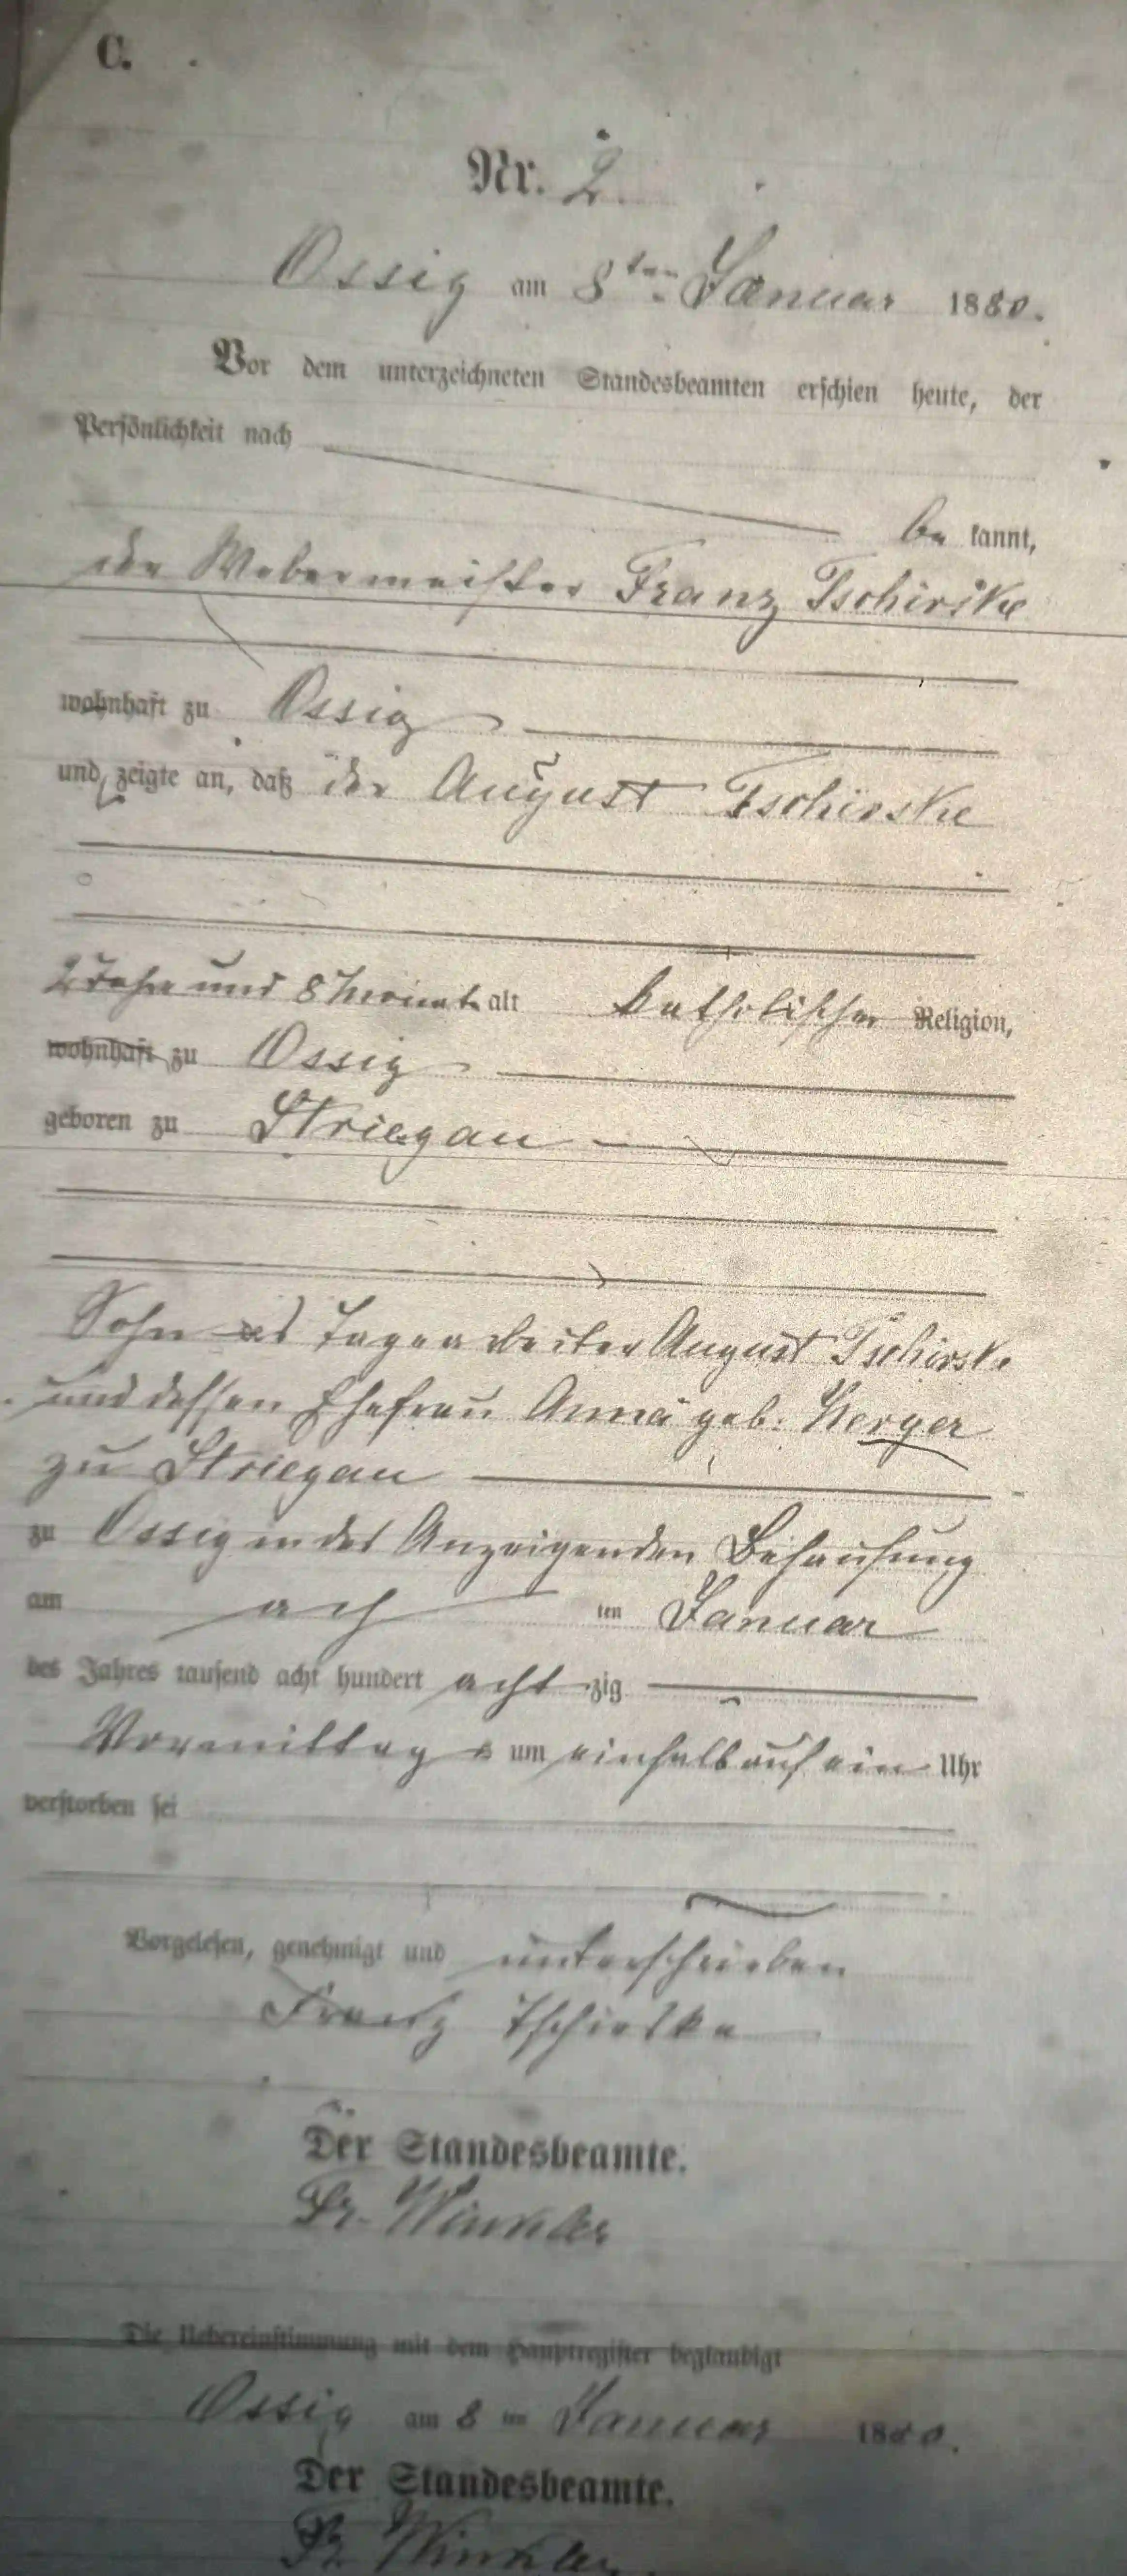 C.
Nr. 2.
Ossig am 8ten Januar 1880.
Vor dem unterzeichneten Standesbeamten erschien heute, der
Persönlichkeit nach
be kannt,
der Webermeister Franz Tschirske
wohnhaft zu Ossig
und zeigte an, daß der August Tschirske
2 Jahre und 8 Monate alt katholischer Religion,
wohnhaft zu Ossig
geboren zu Striegau
Sohn des Tagearbeiter August Tschirske
und dessen Ehefrau Anna geb. Kerger
zu Striegau
zu Ossig in des Anzeigenden Behausung
am ach ten Januar
des Jahres tausend acht hundert acht zig
Vormittag s um einhalb auf ein Uhr
verstorben sei
Vorgelesen, genehmigt und unterschrieben
Franz Tschirske
Der Standesbeamte.
Fr. Winkler
Die Uebereinstimmung mit dem Hauptregister beglaubigt
Ossig am 8 ten Januar 1880.
Der Standesbeamte.
Fr. Winkler.